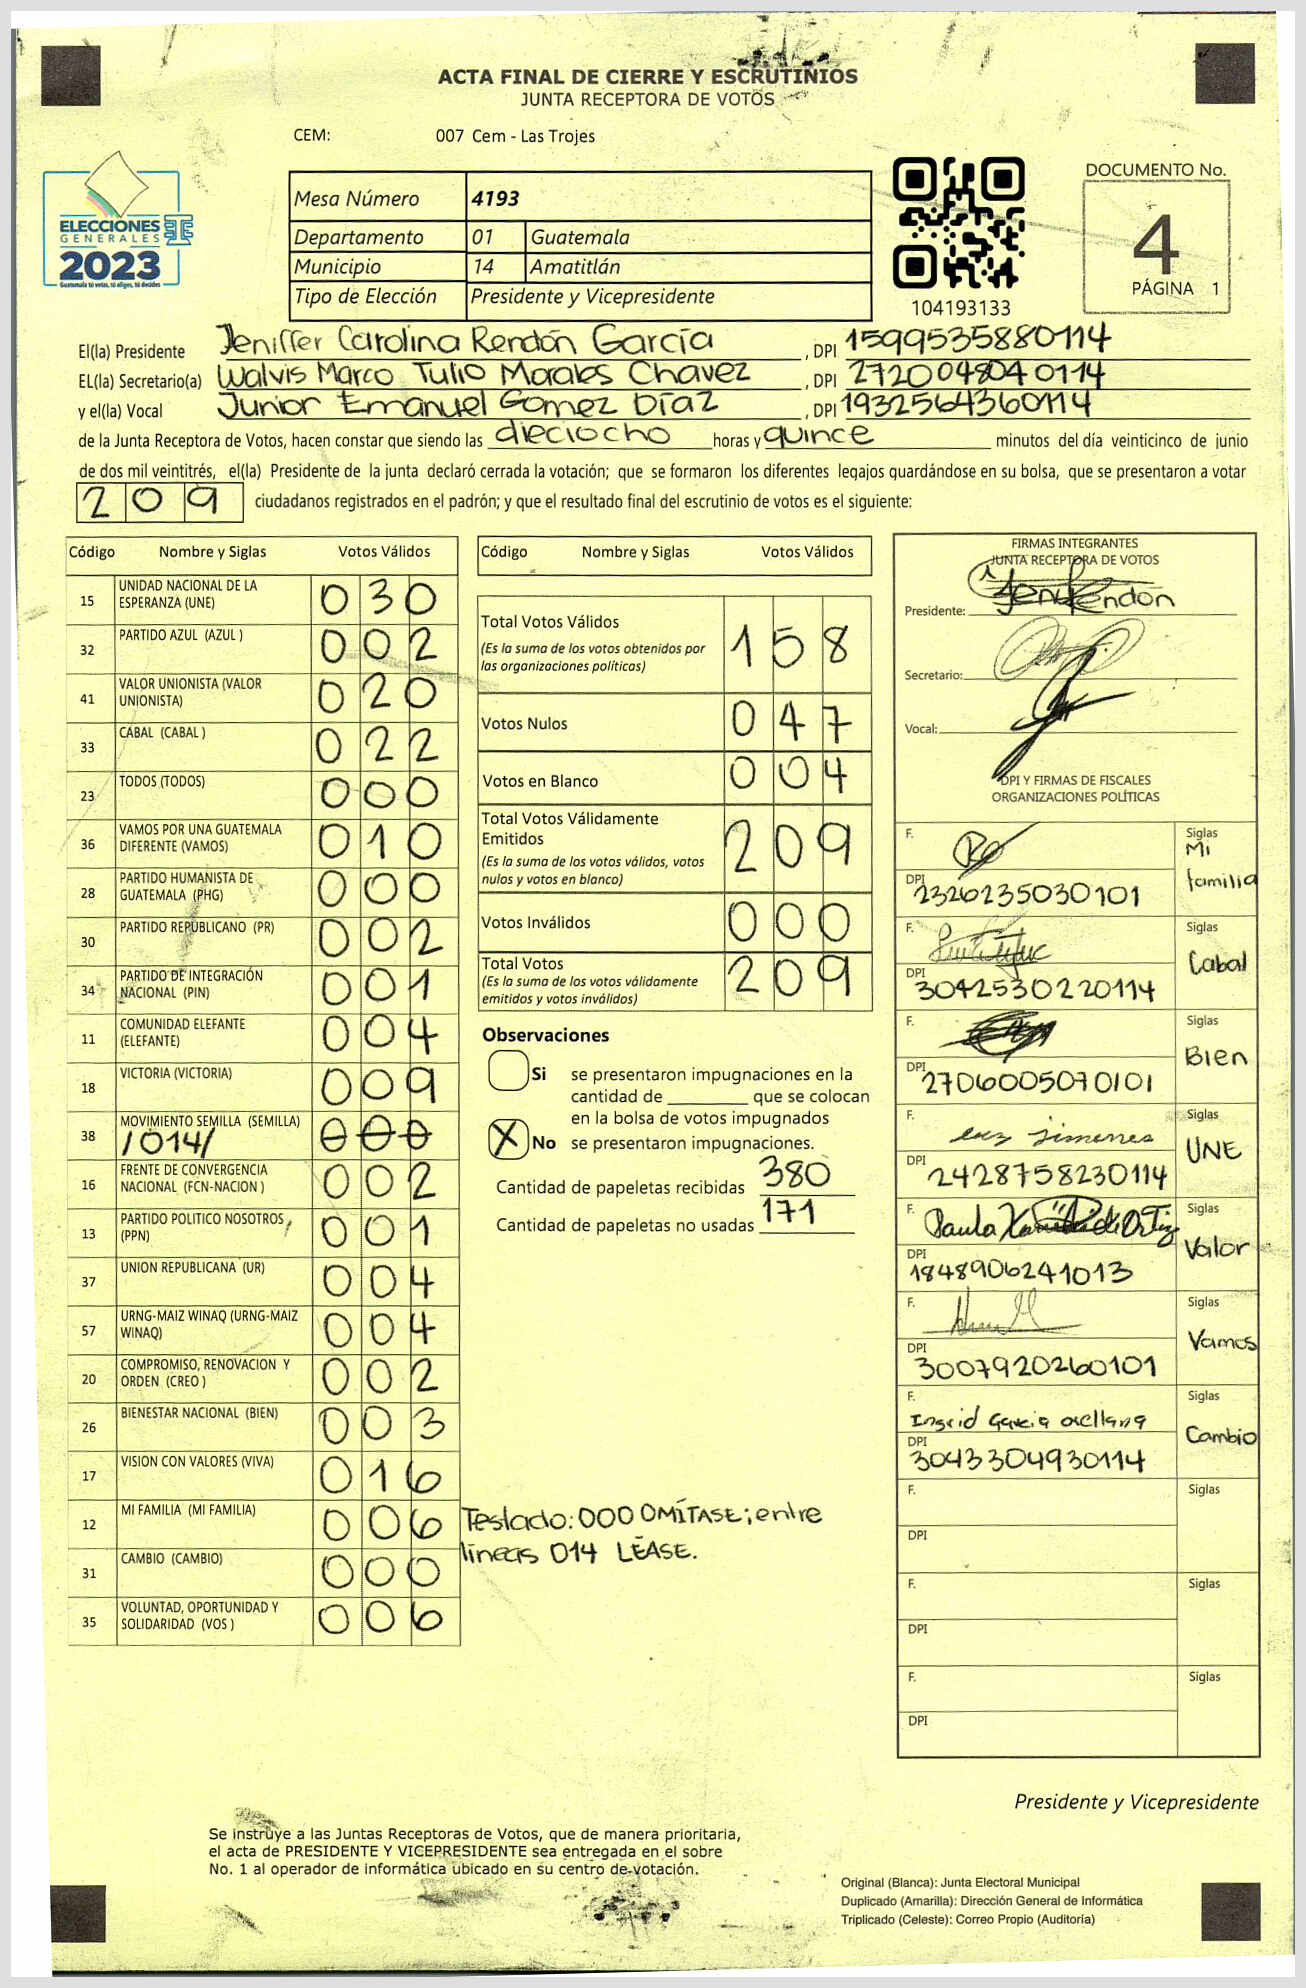 ACTA FINAL DE CIERRE Y ESCRUTINIOS
JUNTA RECEPTORA DE VOTOS
CEM: 007 Cem - Las Trojes
ELECCIONES
GENERALES
2023
Guatemala tú votas, tú eliges, tú decides
Mesa Número 4193
Departamento 01 Guatemala
Municipio 14 Amatitlán
Tipo de Elección Presidente y Vicepresidente
104193133
DOCUMENTO No.
4
PÁGINA 1
El(la) Presidente Jeniffer Carolina Rendón García , DPI 1599535880114
EL(la) Secretario(a) Walvis Marco Tulio Morales Chavez , DPI 2720048040114
y el(la) Vocal Junior Emanuel Gomez Díaz , DPI 1932564360114
de la Junta Receptora de Votos, hacen constar que siendo las dieciocho horas y quince minutos del día veinticinco de junio
de dos mil veintitrés, el(la) Presidente de la junta declaró cerrada la votación; que se formaron los diferentes legajos guardándose en su bolsa, que se presentaron a votar
209 ciudadanos registrados en el padrón; y que el resultado final del escrutinio de votos es el siguiente:
Código Nombre y Siglas Votos Válidos
15 UNIDAD NACIONAL DE LA ESPERANZA (UNE) 030
32 PARTIDO AZUL (AZUL ) 002
41 VALOR UNIONISTA (VALOR UNIONISTA) 020
33 CABAL (CABAL ) 022
23 TODOS (TODOS) 000
36 VAMOS POR UNA GUATEMALA DIFERENTE (VAMOS) 010
28 PARTIDO HUMANISTA DE GUATEMALA (PHG) 000
30 PARTIDO REPUBLICANO (PR) 002
34 PARTIDO DE INTEGRACIÓN NACIONAL (PIN) 001
11 COMUNIDAD ELEFANTE (ELEFANTE) 004
18 VICTORIA (VICTORIA) 009
38 MOVIMIENTO SEMILLA (SEMILLA) /014/ 000
16 FRENTE DE CONVERGENCIA NACIONAL (FCN-NACION ) 002
13 PARTIDO POLITICO NOSOTROS (PPN) 001
37 UNION REPUBLICANA (UR) 004
57 URNG-MAIZ WINAQ (URNG-MAIZ WINAQ) 004
20 COMPROMISO, RENOVACION Y ORDEN (CREO ) 002
26 BIENESTAR NACIONAL (BIEN) 003
17 VISION CON VALORES (VIVA) 016
12 MI FAMILIA (MI FAMILIA) 006
31 CAMBIO (CAMBIO) 000
35 VOLUNTAD, OPORTUNIDAD Y SOLIDARIDAD (VOS ) 006
Código Nombre y Siglas Votos Válidos
Total Votos Válidos 158
(Es la suma de los votos obtenidos por
las organizaciones políticas)
Votos Nulos 047
Votos en Blanco 004
Total Votos Válidamente
Emitidos 209
(Es la suma de los votos válidos, votos
nulos y votos en blanco)
Votos Inválidos 000
Total Votos 209
(Es la suma de los votos válidamente
emitidos y votos inválidos)
Observaciones
Si se presentaron impugnaciones en la
cantidad de ________ que se colocan
en la bolsa de votos impugnados
X No se presentaron impugnaciones.
Cantidad de papeletas recibidas 380
Cantidad de papeletas no usadas 171
Testado: 000 OMÍTASE; entre
lineas 014 LÉASE.
FIRMAS INTEGRANTES
JUNTA RECEPTORA DE VOTOS
Presidente: Jeni Rendon
Secretario:
Vocal:
DPI Y FIRMAS DE FISCALES
ORGANIZACIONES POLÍTICAS
F. Siglas Mi familia
DPI 2326235030101
F. Siglas Cabal
DPI 3042530220114
F. Siglas Bien
DPI 2706005070101
F. Luz Jimenes Siglas UNE
DPI 2428758230114
F. Paula de Ortiz Siglas Valor
DPI 1848906241013
F. Siglas Vamos
DPI 3007920260101
F. Ingrid Garcia Orellana Siglas Cambio
DPI 3043304930114
F. Siglas
DPI
F. Siglas
DPI
F. Siglas
DPI
Presidente y Vicepresidente
Se instruye a las Juntas Receptoras de Votos, que de manera prioritaria,
el acta de PRESIDENTE Y VICEPRESIDENTE sea entregada en el sobre
No. 1 al operador de informática ubicado en su centro de votación.
Original (Blanca): Junta Electoral Municipal
Duplicado (Amarilla): Dirección General de Informática
Triplicado (Celeste): Correo Propio (Auditoría)